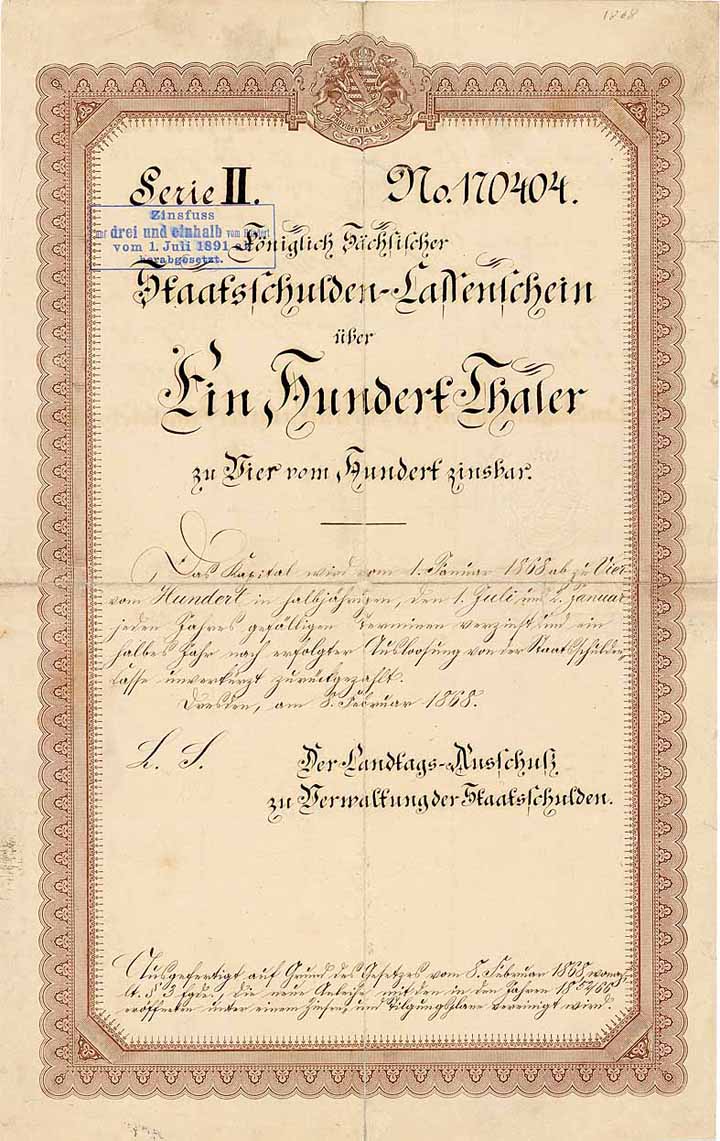 1868
PROVIDENTIAE MEMOR
Serie II. No. 170404.
Zinsfuss
auf drei und einhalb vom Hundert
vom 1. Juli 1891 ab
herabgesetzt.
Königlich Sächsischer
Staatsschulden-Cassenschein
über
Ein Hundert Thaler
zu Vier vom Hundert zinsbar.
Das Kapital wird vom 1. Januar 1868 ab zu Vier
vom Hundert in halbjährigen, den 1. Juli und 2. Januar
jeden Jahres gefälligen Terminen verzinst und ein
halbes Jahr nach erfolgter Ausloosung von der Staatsschulden
casse unverkürzt zurückgezahlt.
Dresden, am 8. Februar 1868.
L. S. Der Landtags-Ausschuß
zu Verwaltung der Staatsschulden.
Ausgefertigt auf Grund des Gesetzes vom 8. Februar 1868, wonach
lt. § 3 die neue Anleihe mit den in den Jahren 1852/66
eröffneten unter einem Zinsen- und Tilgungsplane vereinigt wird.